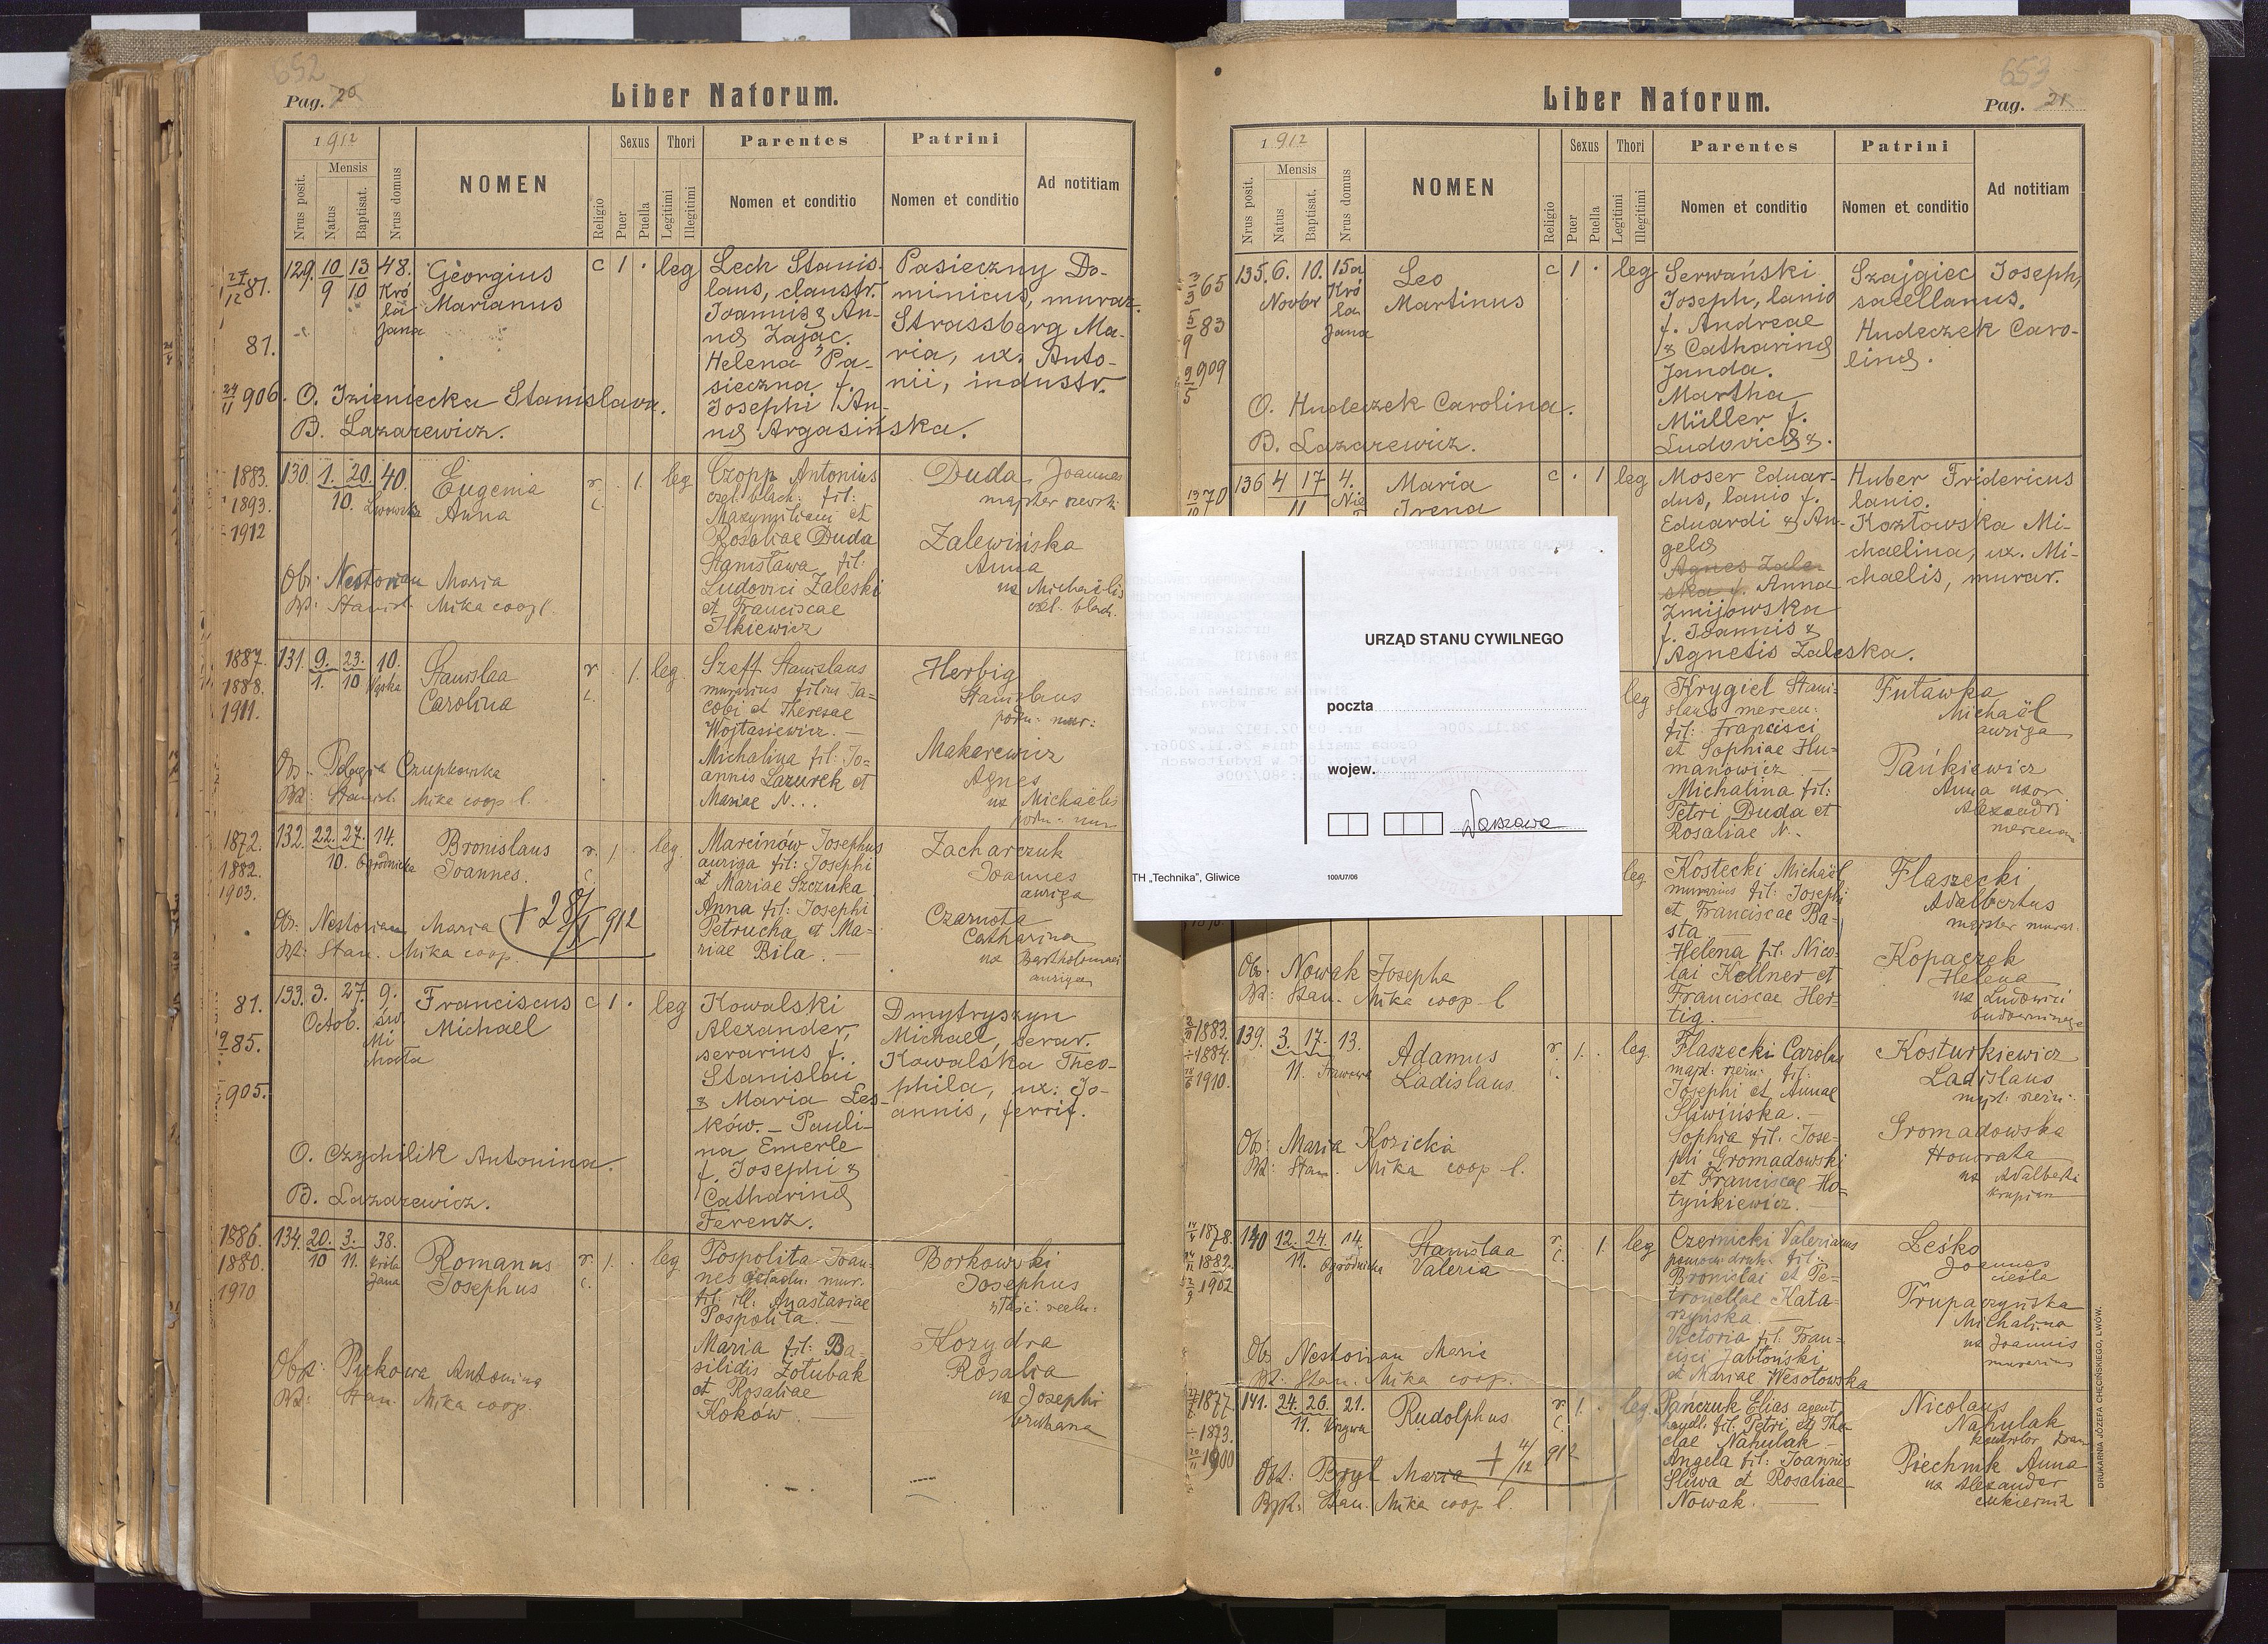 652
Pag. 20
Liber Natorum.
1912
Nrus posit.
Mensis
Natus
Baptisat.
Nrus domus
NOMEN
Religio
Sexus
Puer
Puella
Thori
Legitimi
Illegitimi
Parentes
Nomen et conditio
Patrini
Nomen et conditio
Ad notitiam
129. 10/9 13/10 48. Króla Jana
Georgius
Marianus
c 1 . leg
Lech Stanis-
laus, claustr.
Joannis & An-
nae Zając.
Helena Pa-
sieczna f.
Josephi An-
nae Argasińska.
Pasieczny Do-
minicus, murar.
Strassberg Ma-
ria, ux. Anto-
nii, industr.
81.
81.
906.
O. Izieniecka Stanislava.
B. Lazarewicz.
1883.
1893.
1912
130. 1. 20. 10. 40. Lwowska
Eugenia
Anna
r. c. . 1. leg
Czopp Antonius
czel. blach. fil:
Maxymiliani et
Rosaliae Duda
Stanisława fil:
Ludovici Zaleski
et Franciscae
Ilkiewicz
Duda Joannes
majster szewski
Zalewińska
Anna
ux Michaëlis
czel. blach.
Ob: Nestorian Maria
Bt: Stanisl. Mika coop l.
1887.
1888.
1911.
131. 9. 1. 23. 10 10. Wąska
Stanislaa
Carolina
r. c. . 1. leg.
Szeff Stanislaus
murarius filius Ja-
cobi et Theresae
Wojtasiewicz. —
Michalina fil: Jo-
annis Lazurek et
Mariae N...
Herbig
Stanislaus
pom: mur:
Makarewicz
Agnes
ux Michaëlis
pom: mur
Ob: Pelagia Czupkowska
Bt: Stanisl. Mika coop l.
1872.
1882.
1903.
132. 22. 27. 10. 14. Ogrodnicka
Bronislaus
Joannes.
r. c. 1. leg.
Marcinów Josephus
auriga fil: Josephi
et Mariae Szczuka
Anna fil: Josephi
Petrucha et Ma-
riae Bila. —
Zacharczuk
Joannes
auriga
Czarnota
Catharina
ux Bartholomaei
aurigae
Ob: Nestorian Maria
+ 28/X 912
Bt: Stan. Mika coop.
81.
85.
905.
133. 3. 27. Octob. 9. św. Michała
Franciscus
Michael
c 1 . leg
Kowalski
Alexander,
serarius f.
Stanislai
& Maria Les-
ków. — Pauli-
na Emerle
f. Josephi &
Catharinae
Ferenz.
Dmytryszyn
Michael, serar.
Kowalska Theo-
phila, ux: Jo-
annis, ferrif.
O. Czychilik Antonina.
B. Lazarewicz.
1886.
1880.
1910
134. 20. 10 3. 11. 38. Króla Jana
Romanus
Josephus
r. c. 1. . leg.
Pospolita Joan-
nes mur.
fil: ill: Anastasiae
Pospolita. —
Maria fil: Ba-
silidis Zołubak
et Rosaliae
Koków. —
Borkowski
Josephus
Kozydra
Rosalia
ux Josephi
Obst: Pykowa Antonina
Bt: Stan. Mika coop.
653
Pag. 21
Liber Natorum.
1912
Nrus posit.
Mensis
Natus
Baptisat.
Nrus domus
NOMEN
Religio
Sexus
Puer
Puella
Thori
Legitimi
Illegitimi
Parentes
Nomen et conditio
Patrini
Nomen et conditio
Ad notitiam
65
83
909
135. 6. 10. Novbr 15a Króla Jana
Leo
Martinus
c 1 . leg
Serwański
Joseph, lanio
f. Andreae
& Catharinae
Janda.
Martha
Müller f.
Ludovicae &.
Szajgiec Joseph,
sacellanus.
Hudeczek Caro-
lina.
O. Hudeczek Carolina.
B. Lazarewicz.
70
136 4 17 11 4.
Maria
Irena
c . 1 leg
Moser Eduar-
dus, lanio f.
Eduardi & An-
gelae
Agnes Zale-
ska f. Anna
Zmijowska
f. Joannis &
Agnetis Zaleska.
Huber Fridericus
lanio.
Kozłowska Mi-
chaelina, ux. Mi-
chaelis, murar.
URZĄD STANU CYWILNEGO
poczta
wojew.
Warszawa
TH „Technika”, Gliwice
100/U7/06
leg
Krygiel Stani-
slaus mercen:
fil: Francisci
et Sophiae Hu-
manowicz —
Michalina fil:
Petri Duda et
Rosaliae N..
Futawka
Michaël
auriga
Pańkiewicz
Anna uxor
Alexandri
mercen:
leg.
Kostecki Michaël
murarius fil: Josephi
et Franciscae Ba-
sta
Helena fil: Nico-
lai Kellner et
Franciscae Her-
tig.
Flaszecki
Adalbertus
majster murar.
Kopaczek
Helena
ux Ludovici
budowniczego
Ob: Nowak Josepha
Bt: Stan. Mika coop l
1883.
1884.
1910.
139. 3. 17. 11. 13.
Adamus
Ladislaus
r. c. 1. . leg.
Flaszecki Carolus
majst. rzeźn: fil:
Josephi et Annae
Sliwińska. —
Sophia fil: Jose-
phi Gromadowski
et Franciscae Ho-
tyńkiewicz. —
Kosturkiewicz
Ladislaus
majst: rzeźn:
Gromadowska
Honorata
ux Adalberti
krupiarz
Ob: Maria Kozicka
Bt: Stan. Mika coop l.
1878.
1882.
1902
140 12. 24. 11. 14. Ogrodnicka
Stanislaa
Valeria
r. c. . 1. leg
Czernicki Valerianus
pomocn. druk. fil:
Bronislai et Pe-
tronellae Kata-
rzyńska. —
Victoria fil: Fran-
cisci Jabłoński
et Mariae Wesołowska
Leśko
Joannes
cieśla
Trupaczyńska
Michalina
ux Joannis
murarius
Ob: Nestorian Maria
Bt: Stan. Mika coop.
1877.
1873.
1900
141. 24. 26. 11. 21. Krzywa
Rudolphus
r. c. 1. leg.
Pańczuk Elias agent
handl. fil. Petri et The-
clae Nahulak —
Angela fil: Joannis
Sliwa et Rosaliae
Nowak. —
Nicolaus
Nahulak
Piechnik Anna
ux Alexander
cukiernik
Obst: Bryl Maria + 4/12 912
Bpt: Stan. Mika coop l.
DRUKARNIA JÓZEFA CHĘCIŃSKIEGO, LWÓW.